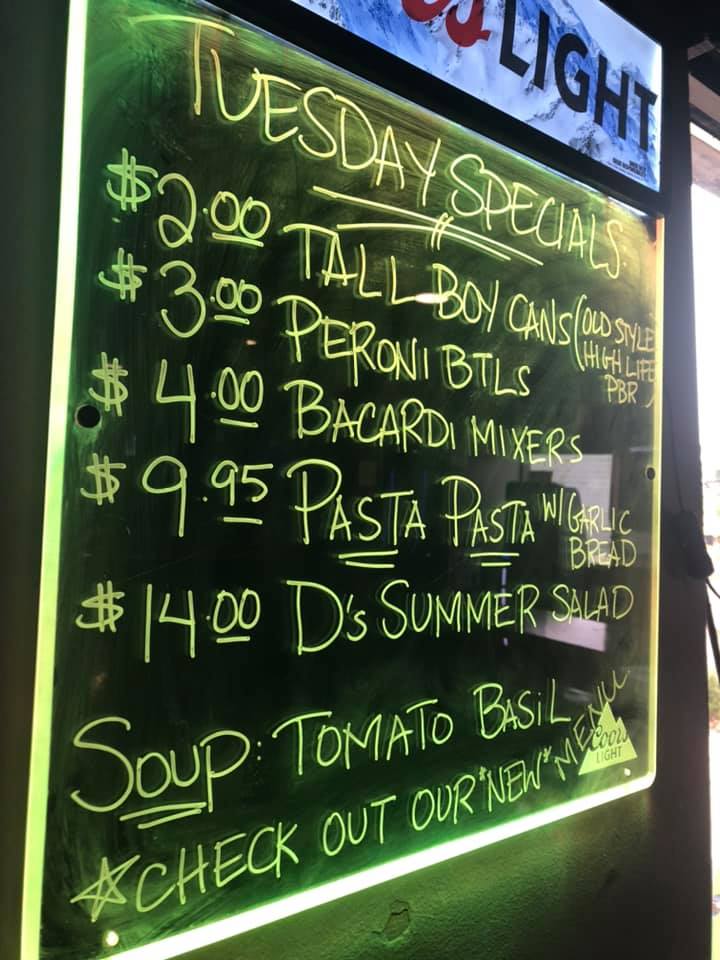 LIGHT
TUESDAY SPECIALS
$2.00 TALL BOY CANS (OLD STYLE
HIGH LIFE
PBR)
$3.00 PERONI BTLS
$4.00 BACARDI MIXERS
$9.95 PASTA PASTA W/ GARLIC
BREAD
$14.00 D's SUMMER SALAD
SOUP: TOMATO BASIL
☆CHECK OUT OUR "NEW" MENU
Coors
LIGHT